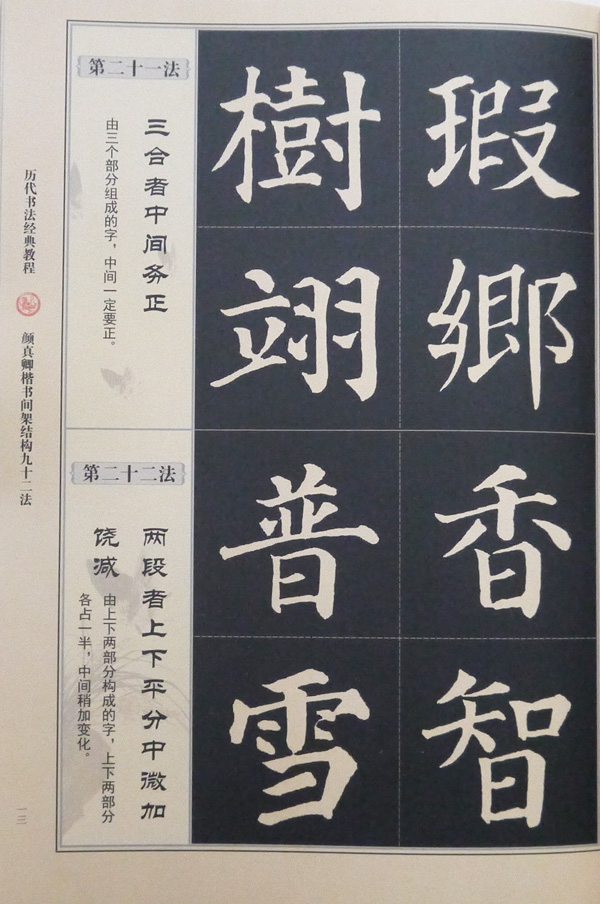 历代书法经典教程
颜真卿楷书间架结构九十二法
一三
第二十一法
三合者中间务正
由三个部分组成的字，中间一定要正。
樹
瑕
翊
鄉
第二十二法
两段者上下平分中微加
饶减
由上下两部分构成的字，上下两部分
各占一半，中间稍加变化。
普
香
雪
智